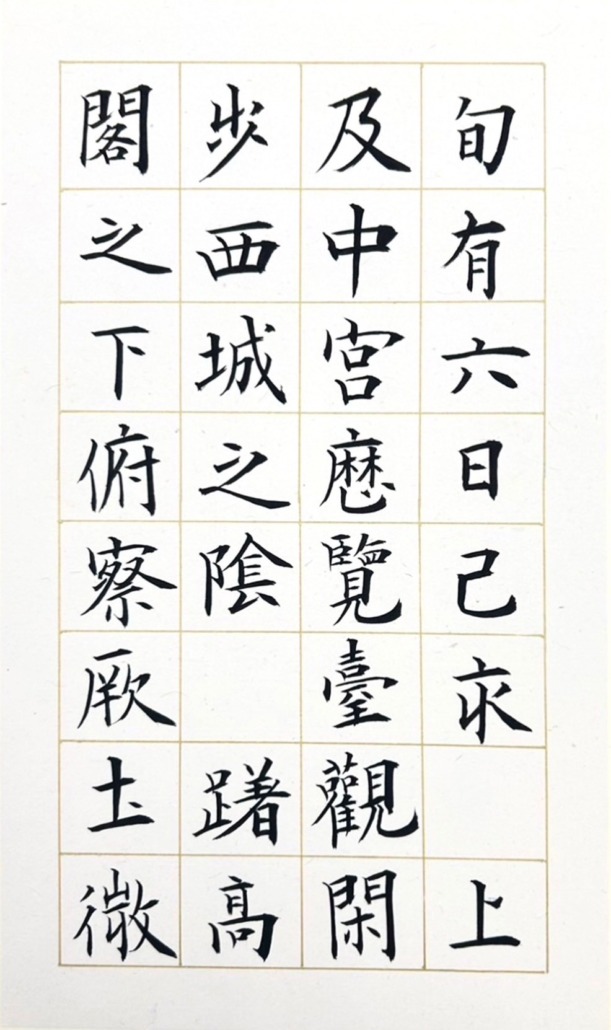 旬有六日己亥 上
及中宮歷覽臺觀閑
步西城之陰 躇高
閣之下俯察厥土微